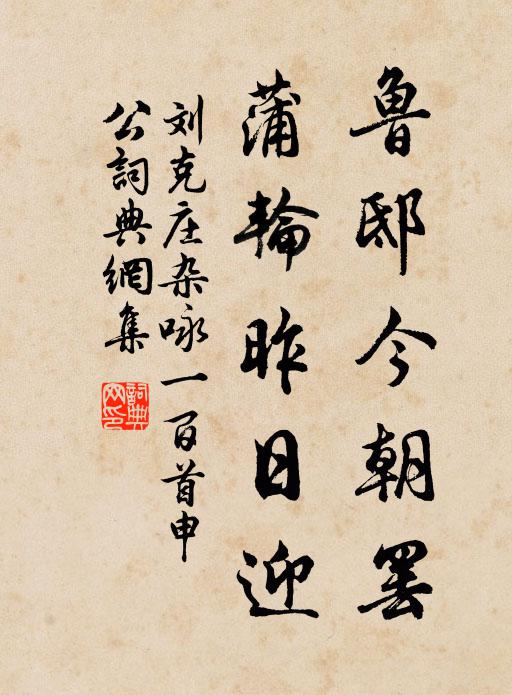 魯邸今朝罢
蒲輪昨日迎
刘克庄杂咏一百首申
公詞典網集
詞典网印